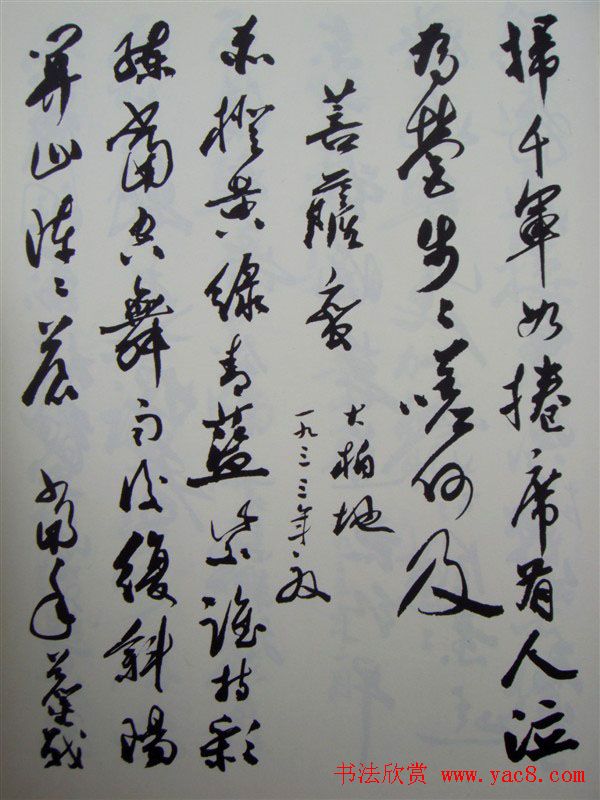 掃千軍如捲席有人泣
為營步々嗟何及
菩薩蛮
大柏地
一九三三年夏
赤橙黄綠青藍紫誰持彩
練當空舞雨後復斜陽
關山陣々蒼 當年鏖戰
书法欣赏 www.yac8.com